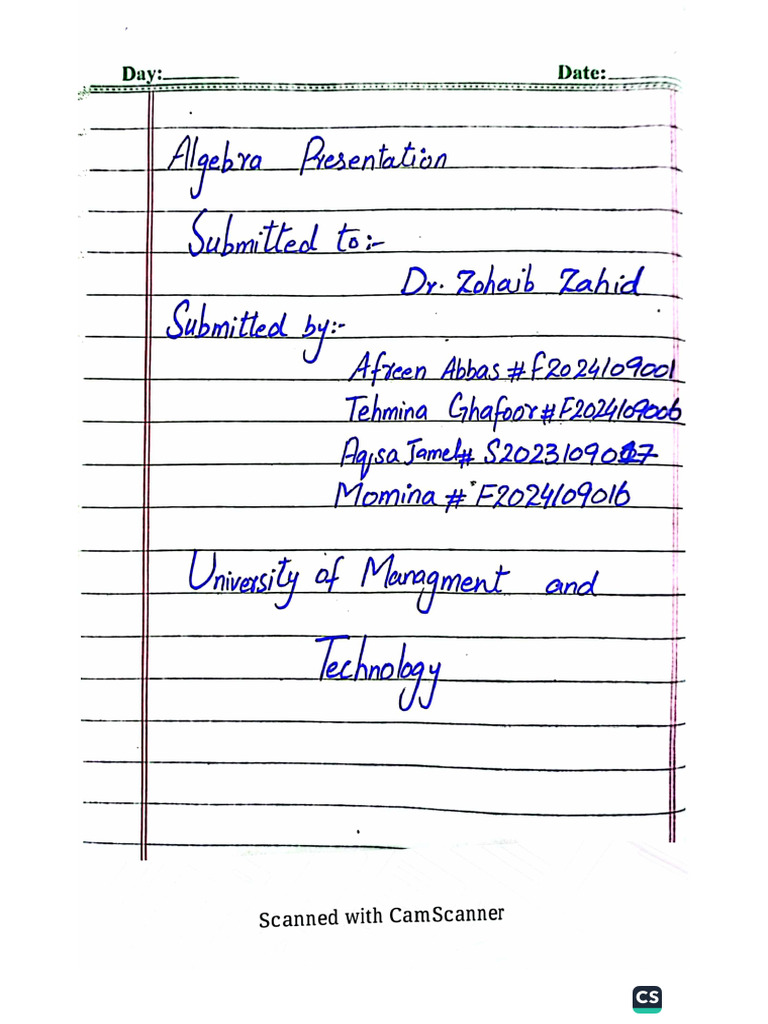 Day:
Date:
Algebra Presentation
Submitted to:-
Dr. Zohaib Zahid
Submitted by:-
Afreen Abbas # F2024109001
Tehmina Ghafoor # F2024109006
Aqsa Jamel # S2023109017
Momina # F2024109016
University of Managment and
Technology
Scanned with CamScanner
CS